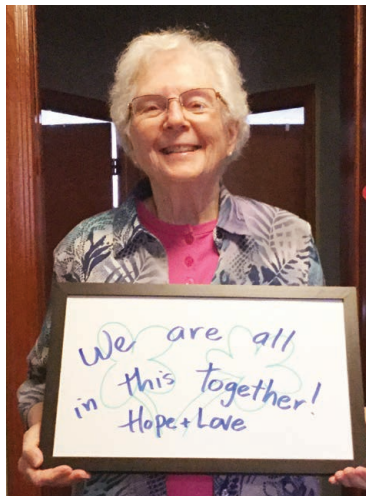 We are all
in this together!
Hope + Love